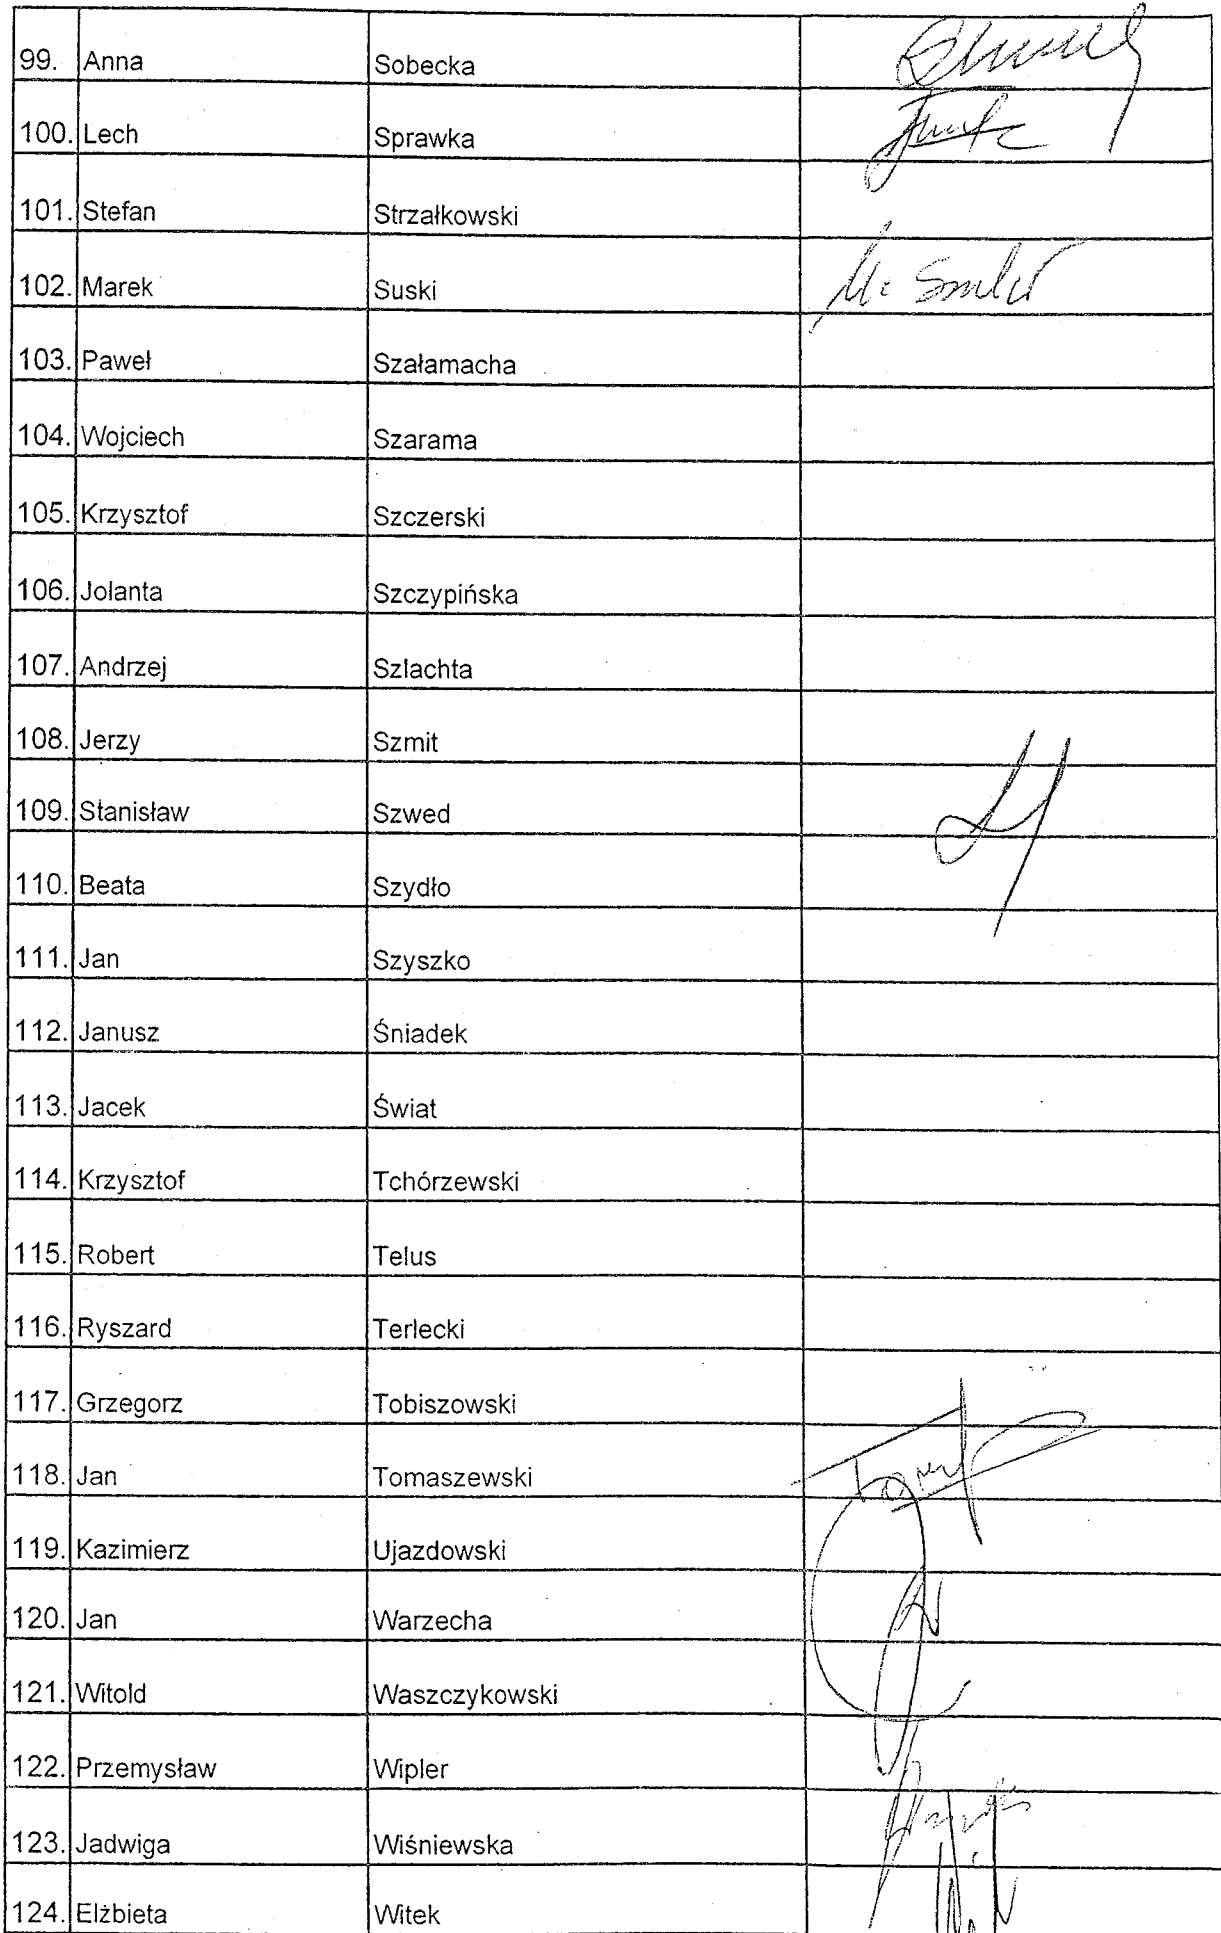 99. Anna Sobecka
100. Lech Sprawka
101. Stefan Strzałkowski
102. Marek Suski
103. Paweł Szałamacha
104. Wojciech Szarama
105. Krzysztof Szczerski
106. Jolanta Szczypińska
107. Andrzej Szlachta
108. Jerzy Szmit
109. Stanisław Szwed
110. Beata Szydło
111. Jan Szyszko
112. Janusz Śniadek
113. Jacek Świat
114. Krzysztof Tchórzewski
115. Robert Telus
116. Ryszard Terlecki
117. Grzegorz Tobiszowski
118. Jan Tomaszewski
119. Kazimierz Ujazdowski
120. Jan Warzecha
121. Witold Waszczykowski
122. Przemysław Wipler
123. Jadwiga Wiśniewska
124. Elżbieta Witek